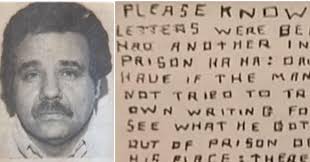 PLEASE KNOW
LETTERS WERE BE
HAD ANOTHER IN
PRISON HA HA: DA
HAVE IF THE MAN
NOT TRIED TO TR
OWN WRITING FO
SEE WHAT HE GOT
OUT OF PRISON DE
HIS PLACE: THERE